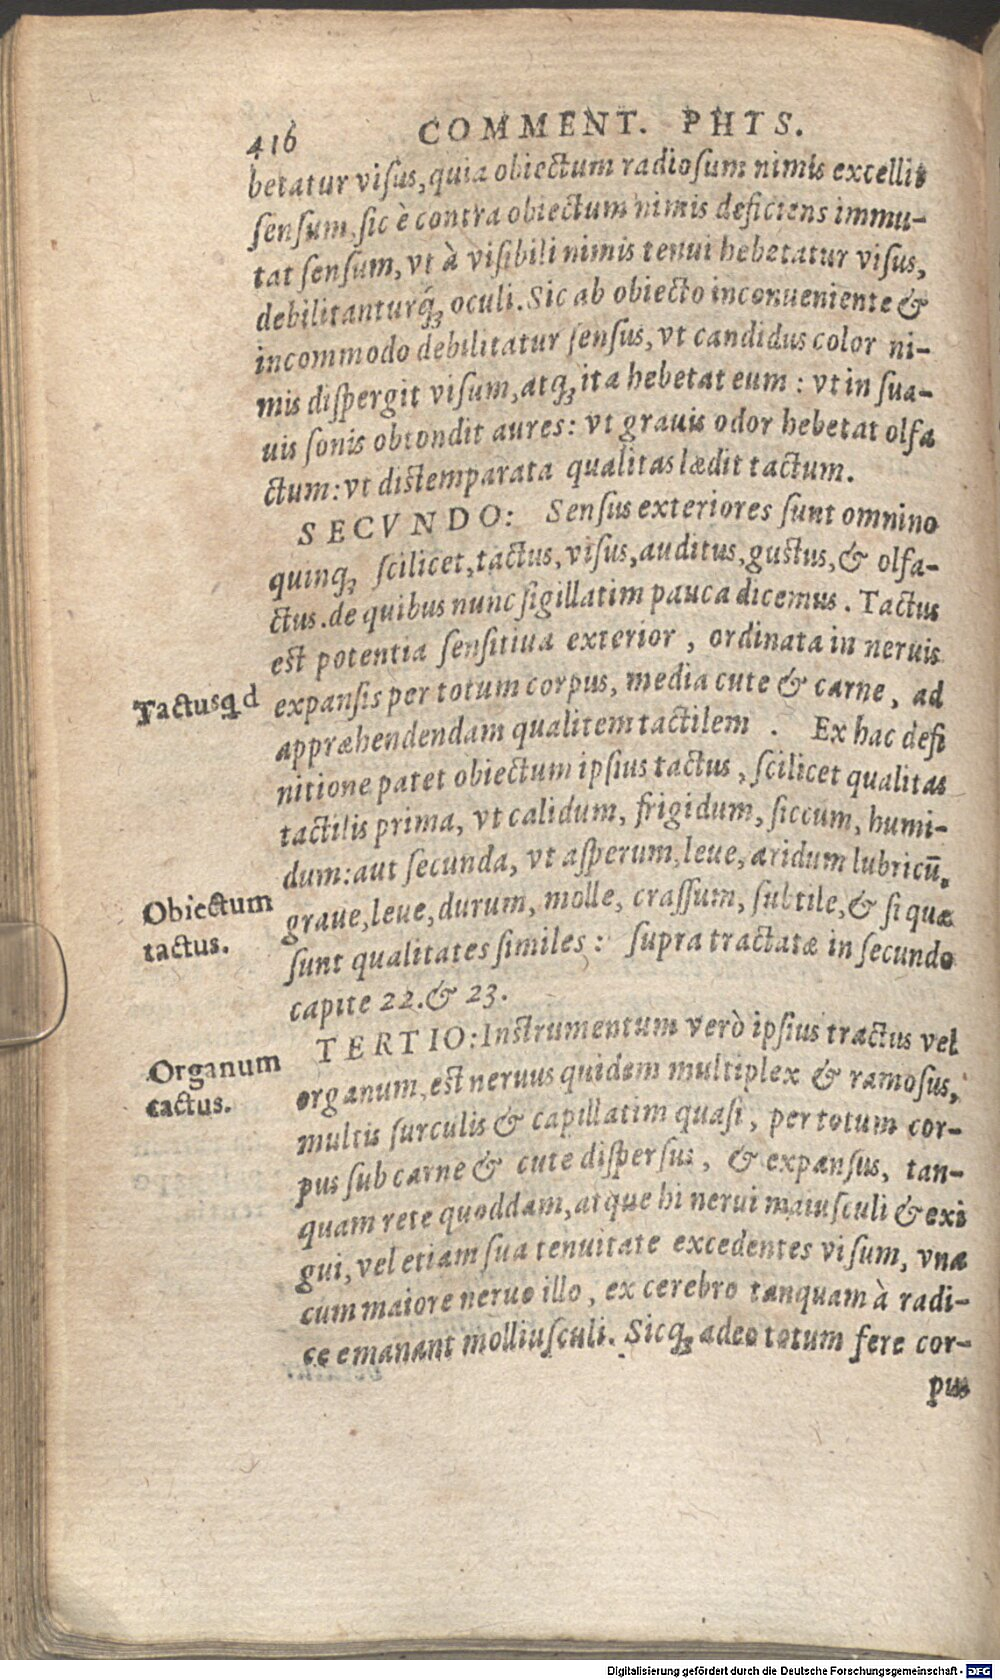 416 COMMENT. PHTS.
betatur visus, quia obiectum radiosum nimis excellit
sensum, sic è contra obiectum nimis deficiens immu-
tat sensum, vt à visibili nimis tenui hebetatur visus,
debilitanturq́; oculi. Sic ab obiecto inconueniente &
incommodo debilitatur sensus, vt candidus color ni-
mis dispergit visum, atq; ita hebetat eum: vt in sua-
uis sonis obtondit aures: vt grauis odor hebetat olfa
ctum: vt distemparata qualitas lædit tactum.
SECVNDO: Sensus exteriores sunt omnino
quinq; scilicet, tactus, visus, auditus, gustus, & olfa-
ctus. de quibus nunc sigillatim pauca dicemus. Tactus
est potentia sensitiua exterior, ordinata in neruis
Tactus qd
expansis per totum corpus, media cute & carne, ad
appræhendendam qualitem tactilem. Ex hac defi
nitione patet obiectum ipsius tactus, scilicet qualitas
tactilis prima, vt calidum, frigidum, siccum, humi-
dum: aut secunda, vt asperum, leue, aridum lubricū,
Obiectum
tactus.
graue, leue, durum, molle, crassum, subtile, & si quæ
sunt qualitates similes: supra tractatæ in secundo
capite 22. & 23.
TERTIO: Instrumentum verò ipsius tractus vel
Organum
tactus.
organum, est neruus quidem multiplex & ramosus,
multis surculis & capillatim quasi, per totum cor-
pus sub carne & cute dispersus, & expansus, tan-
quam rete quoddam, atque hi nerui maiusculi & exi
gui, vel etiam sua tenuitate excedentes visum, vna
cum maiore neruo illo, ex cerebro tanquam à radi-
ce emanant molliusculi. Sicq; adeo totum fere cor-
pus
Digitalisierung gefördert durch die Deutsche Forschungsgemeinschaft - DFG